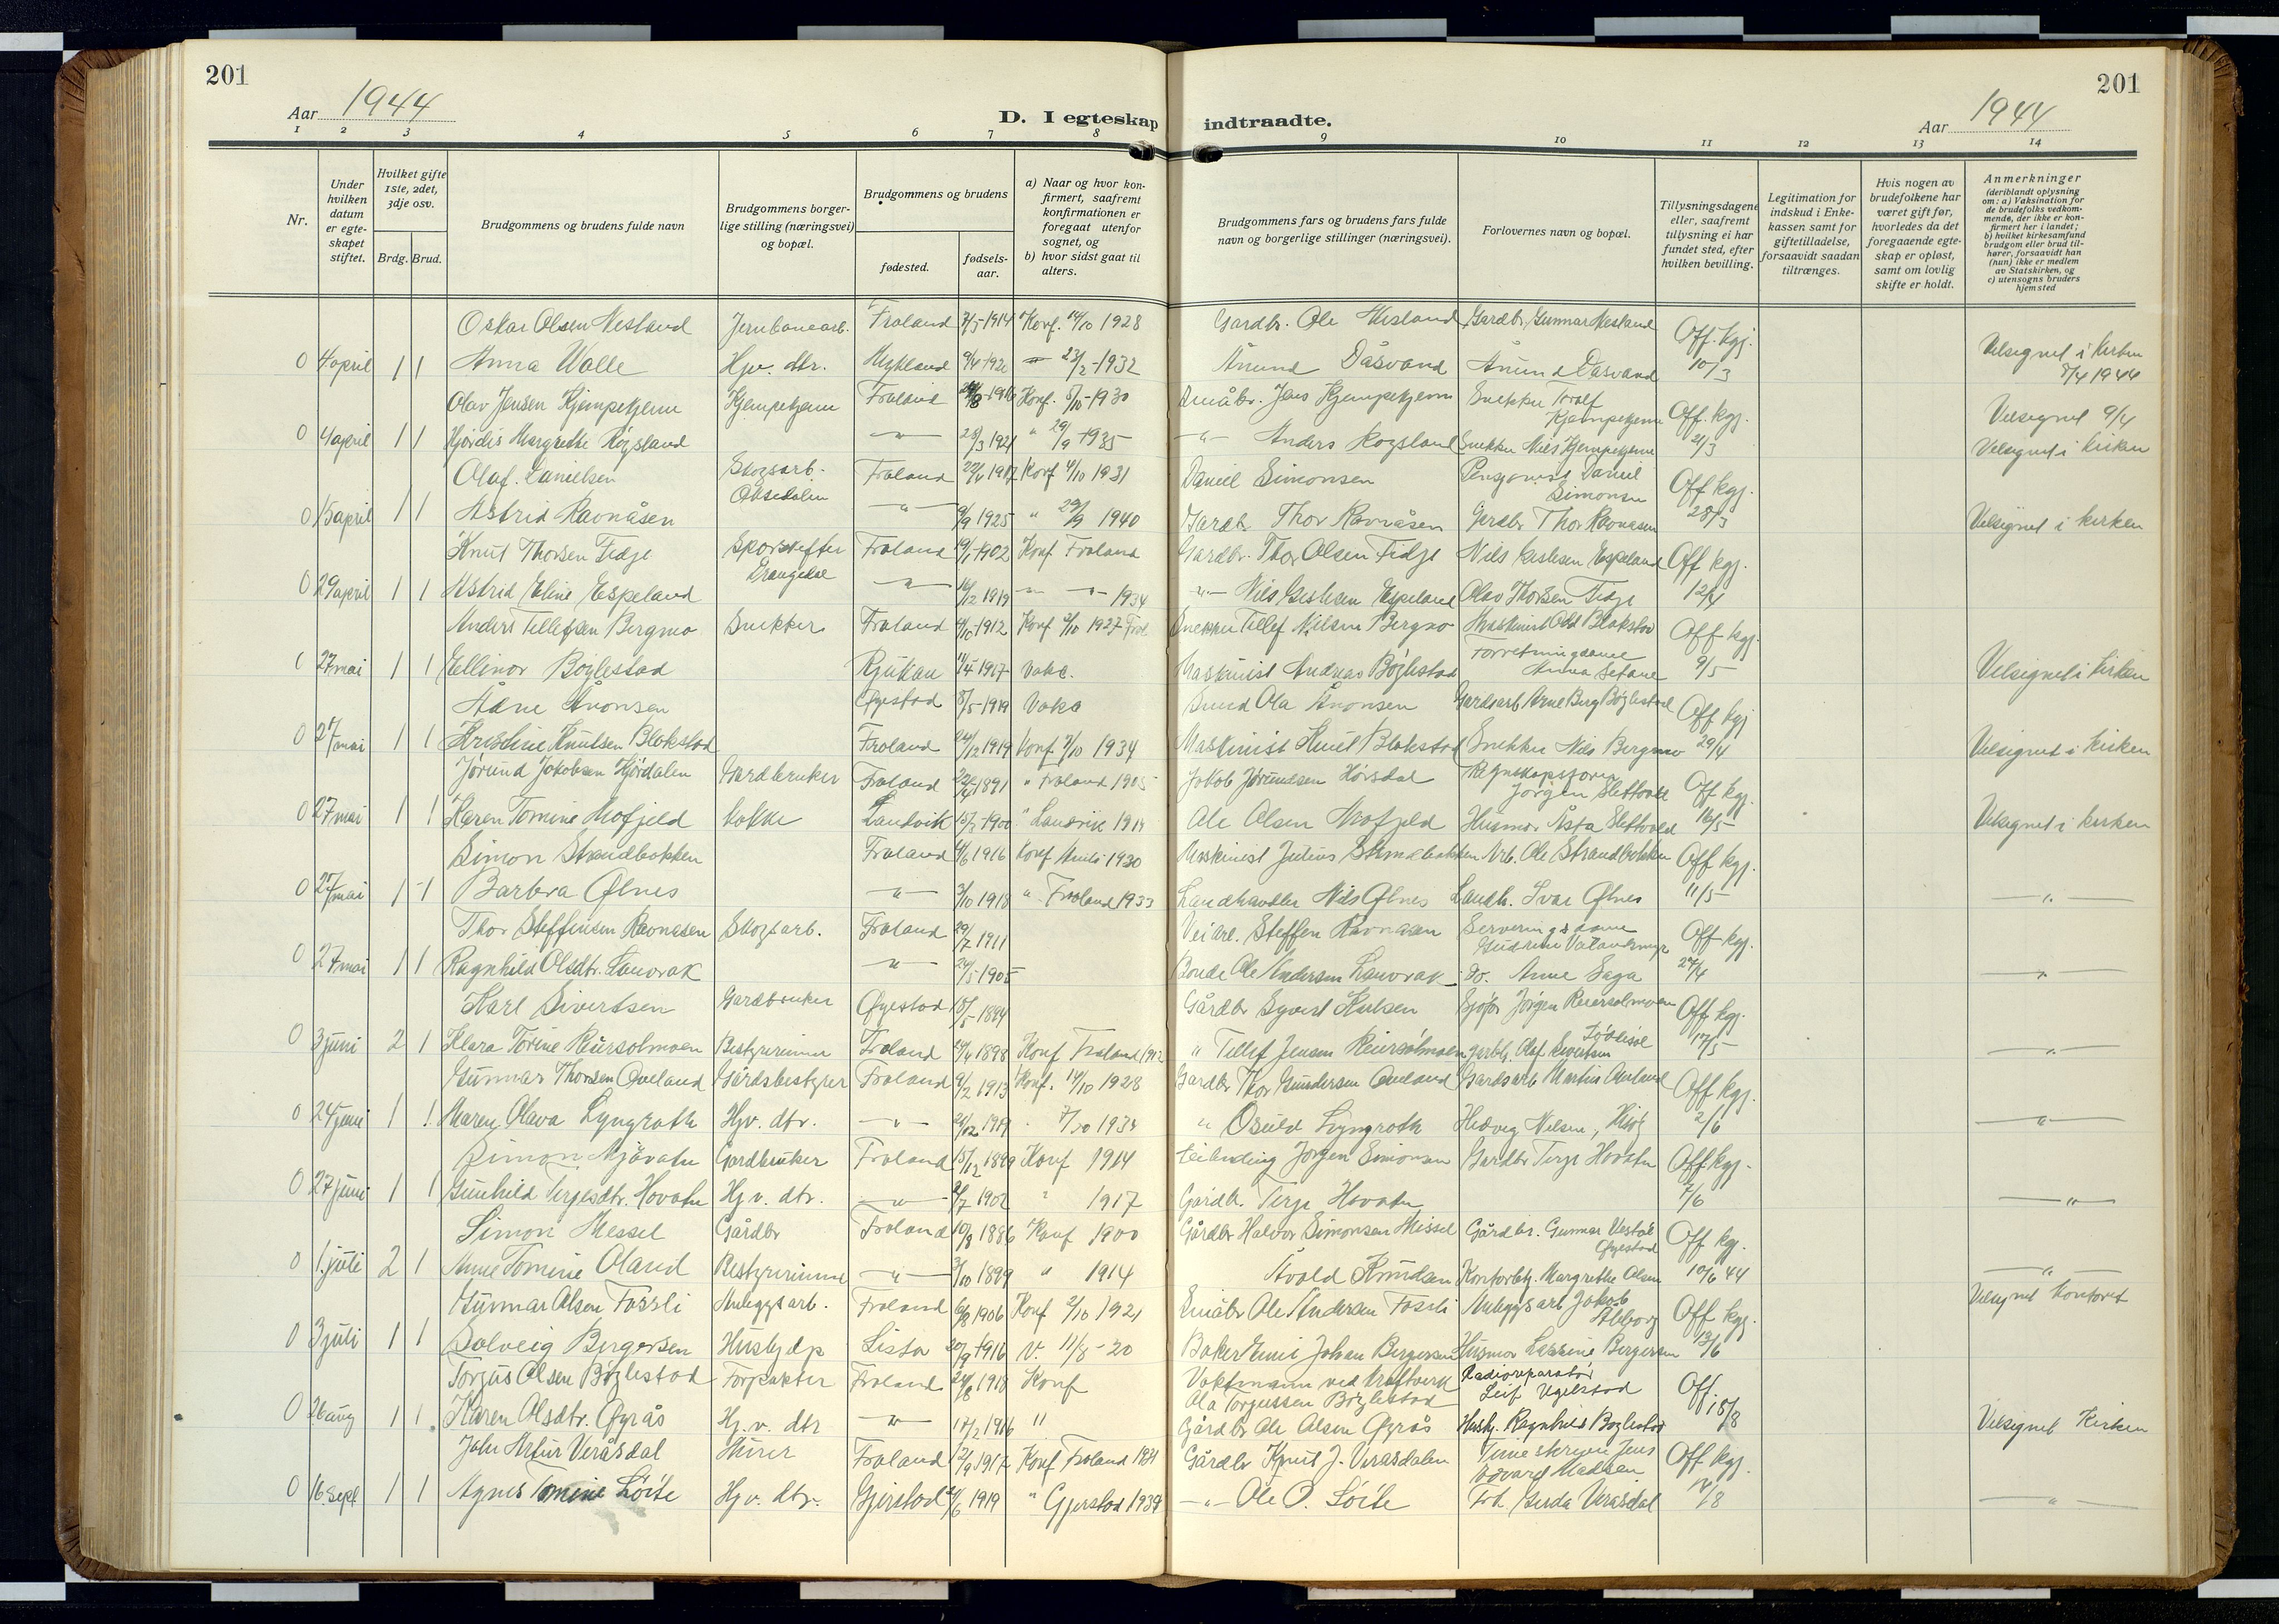 201
201
Aar 1944
D. I egteskap indtraadte.
Aar 1944
1 2 3 4 5 6 7 8 9 10 11 12 13 14
Nr.
Under hvilken datum er egteskapet stiftet.
Hvilket gifte 1ste, 2det, 3dje osv.
Brdg. Brud.
Brudgommens og brudens fulde navn
Brudgommens borgerlige stilling (næringsvei) og bopæl.
Brudgommens og brudens
fødested.
fødselsaar.
a) Naar og hvor konfirmert, saafremt konfirmationen er foregaat utenfor sognet, og
b) hvor sidst gaat til alters.
Brudgommens fars og brudens fars fulde navn og borgerlige stillinger (næringsvei).
Forlovernes navn og bopæl.
Tillysningsdagene eller, saafremt tillysning ei har fundet sted, efter hvilken bevilling.
Legitimation for indskud i Enkekassen samt for giftetilladelse, forsaavidt saadan tiltrænges.
Hvis nogen av brudefolkene har været gift før, hvorledes da det foregaaende egteskap er opløst, samt om lovlig skifte er holdt.
Anmerkninger
(deriblandt oplysning om: a) Vaksination for de brudefolks vedkommende, der ikke er konfirmert her i landet;
b) hvilket kirkesamfund brudgom eller brud tilhører, forsaavidt han (hun) ikke er medlem av Statskirken, og
c) utensogns bruders hjemsted
Oskar Olsen Mesland Jernbanearb. Froland 7/5-1914 Konf. 14/10 1928 Gardbr. Ole Mesland Gardbr. Gunnar Mesland Off. kgj.
0 4 april 1 1 Anna Walle Hjv. dtr. Mykland 23/2-1932 Ånund Dåsvand Ånund Dåsvand 10/3 Velsignet i kirken 8/4 1944
Olav Jensen Kjempekjenn Kjempekjenn Froland Konf. 5/10-1930 Småbr. Jens Kjempekjenn Snekker Torolf Kjempekjenn Off. kgj. Velsignet 9/4
0 4 april 1 1 Hjørdis Margrethe Røysland -"- 1921 " 29/9 1935 -"- Anders Røysland Snekker Nils Kjempekjenn 21/3 Velsignet i kirken
Olaf Danielsen Skogsarb. Froland Konf 4/10 1931 Daniel Simonsen Pensjonist Daniel Simonsen Off kgj.
0 15 april 1 1 Astrid Ravnåsen -"- 9/9 1925 " 29/9 1940 Gardb. Thor Ravnåsen Gardbr Thor Ravnåsen 28/3 Velsignet i kirken
Knut Thorsen Fidje Sporskifter Froland 1902 Konf Froland Gardbr. Thor Olsen Fidje Nils Espeland Off kgj.
0 29 april 1 1 Astrid Eline Espeland -"- 16/12 1919 -"- 1934 -"- Nils Espeland Olav Thorsen Fidje 12/4
Anders Tellefsen Bergmo Snekker Froland 1912 Konf 2/10 1927 Snekker Tellef Nilsen Bergmo Maskinist Blakstad Off kgj.
27 mai 1 1 Ellinor Bøylestad Rjukan 1917 Vaks. Maskinist Andreas Bøylestad Forretningsdame Anna 9/5 Velsignet i kirken
Ådne Ånonsen Øyestad 8/5-1919 Vaks Ola Ånonsen Gardsarb Arne Berg Bøylestad Off kgj
0 27 mai 1 1 Kristine Knutsen Blakstad Froland 1919 Konf 7/10 1934 Maskinist Knut Blakstad Snekker Nils Bergmo 29/4 Velsignet i kirken
Jørund Jakobsen Hjørdalen Gardbruker Froland 1891 " Froland 1905 Jakob Jørundsen Regnskapsfører Jørgen Slettvold Off kgj.
0 27 mai 1 1 Karen Tomine Mofjeld Kokke Landvik 1900 " Landvik Ole Olsen Mofjeld Husmor Åsta Slettvold 16/5 Velsignet i kirken
Simon Strandbakken Froland 1916 Konf 1930 Maskinist Julius Strandbakken Arb. Ole Strandbakken Off kgj.
0 27 mai 1 1 Barbra Ølnes -"- 3/10 1918 " Froland 1933 Landhandler Nils Ølnes Landh. Ivar Ølnes 11/5 -"-
Thor Steffensen Ravnåsen Skogsarb. Froland 1911 Steffen Ravnåsen Serveringsdame Gudrun Off kgj.
0 27 mai 1 1 Ragnhild Olsdtr. Lauvrak -"- 1905 Bonde Ole Andersen Lauvrak do. Anne Saga 27/4 -"-
Karl Sivertsen Gardbruker Øyestad 1894 Gårdbr Syvert Jørgen Reiersølmoen Off kgj.
0 3 juni 2 1 Klara Torine Reiersølmoen Bestyrerinne Froland 1898 Konf Froland " Tellef Jensen Reiersølmoen Olaf Sivertsen 17/5 -"-
Gunnar Thorsen Oueland Gårdsbestyrer Froland 9/2 1913 Konf. 14/10 1928 Gardbr Thor Gundersen Gardsarb Martin Off kgj.
0 24 juni 1 1 Maren Olava Lyngroth Hjv. dtr. -"- 1919 7/10 1934 " Osuld Lyngroth Hedvig Nilsen, 2/6 -"-
Simon Mjåvatn Gardbruker Froland 15/12 1899 Konf 1914 Jørgen Simonsen Gardbr Terje Hovatn Off kgj.
0 27 juni 1 1 Gunhild Terjesdtr. Hovatn Hjv. dtr. -"- 1902 " 1917 Gårdb. Terje Hovatn 7/6 -"-
Simon Messel Gårdbr Froland 10/8 1886 Konf 1900 Gårdbr Halvor Simonsen Messel Gårdbr. Gunnar Øyestad Off kg.
0 1. juli 2 1 Anne Tomine Oland Bestyrerinne -"- 1899 " 1914 Åvold Knudsen Kontorbtj. Margrethe Olsen 10/6 44 -"-
Gunnar Olsen Fossli Anleggsarb. Froland 1906 Konf 2/10 1921 Småbr Ole Andersen Fossli Anleggsarb Jakob Off kgj. Velsignet kontoret
0 3 juli 1 1 Solveig Bergersen Hushjelp Lista 1916 V. 11/8-20 Baker Emil Johan Bergersen Husmor Bergersen 13/6
Torjus Olsen Bøylestad Forpakter Froland 1918 Konf Vaktmann ved kraftverk Ola Torjussen Bøylestad Radioreparatør Leif Ugelstad Off.
0 26 aug 1 1 Karen Olsdtr. Øyrås Hj.v. dtr -"- 1916 " Gårdbr Ole Olsen Øyrås Hushj. Ragnhild Bøylestad 18/8 Velsignet Kirken
John Artur Veråsdal Murer Froland 1917 Konf Froland 1931 Gårdbr Knut J. Veråsdalen Jens Edvard Madsen Off kgj.
0 16 sept 1 1 Agnes Tomine Løite Hjv. dtr. Gjerstad 1919 " Gjerstad 1934 -"- Ole O. Løite Frk. Gerda Veråsdal -"-